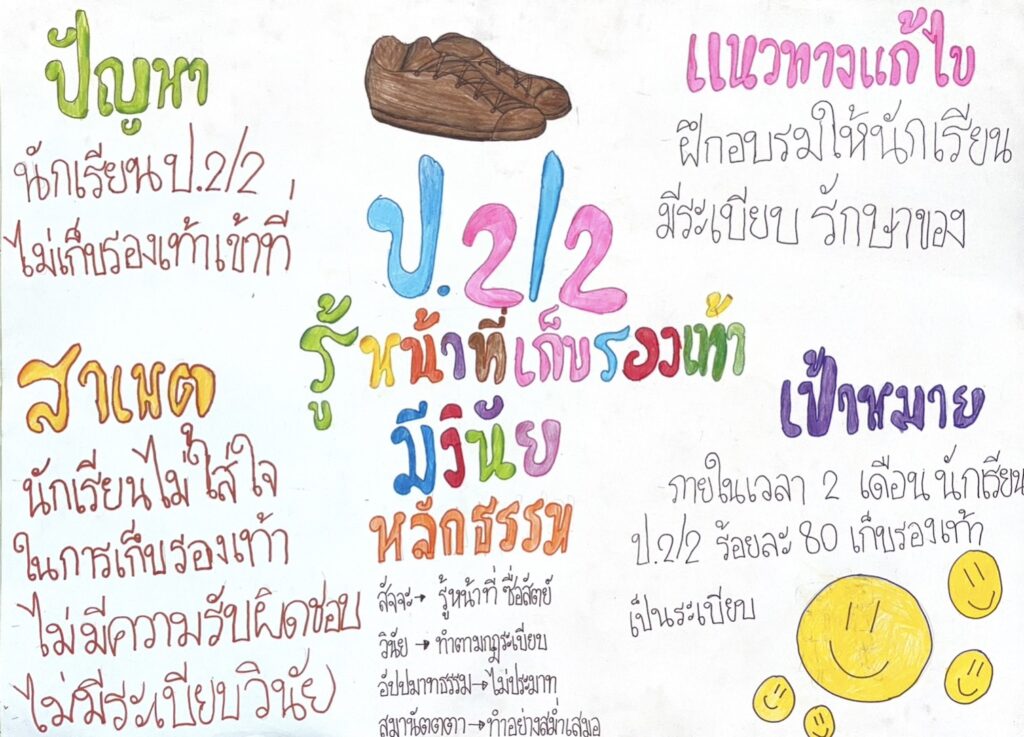 ปัญหา
นักเรียน ป.2/2
ไม่เก็บรองเท้าเข้าที่
สาเหตุ
นักเรียนไม่ใส่ใจ
ในการเก็บรองเท้า
ไม่มีความรับผิดชอบ
ไม่มีระเบียบวินัย
ป.2/2
รู้หน้าที่เก็บรองเท้า
มีวินัย
หลักธรรม
สัจจะ → รู้หน้าที่ ซื่อสัตย์
วินัย → ทำตามกฎระเบียบ
อัปปมาทธรรม → ไม่ประมาท
สมานัตตตา → ทำอย่างสม่ำเสมอ
แนวทางแก้ไข
ฝึกอบรมให้นักเรียน
มีระเบียบ รักษาของ
เป้าหมาย
ภายในเวลา 2 เดือน นักเรียน
ป.2/2 ร้อยละ 80 เก็บรองเท้า
เป็นระเบียบ